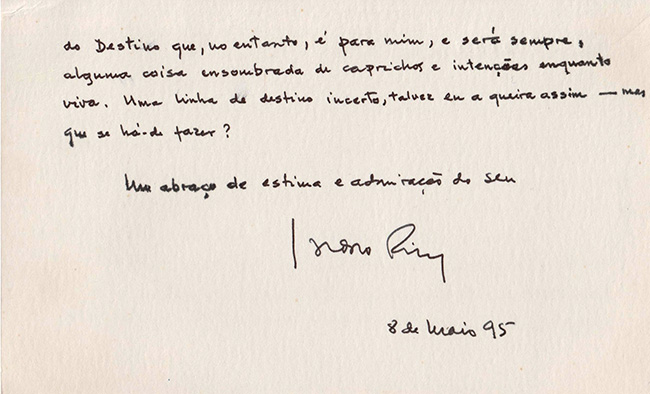 do Destino que, no entanto, é para mim, e será sempre,
alguma coisa ensombrada de caprichos e intenções enquanto
viva. Uma linha de destino incerto, talvez eu a queira assim — mas
que se há-de fazer?
Um abraço de estima e admiração do seu
8 de Maio 95